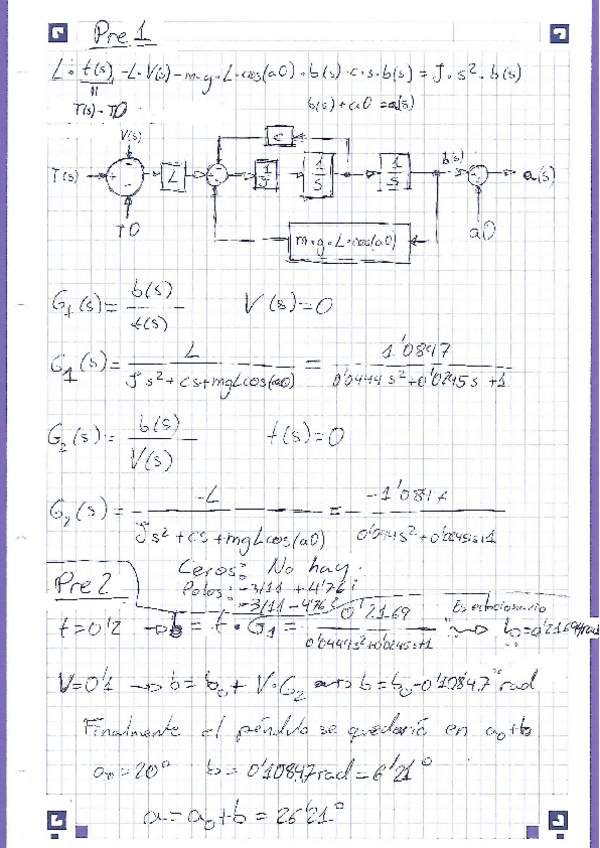 Pre 1
L·t(s) - L·V(s) - m·g·L·cos(a0)·b(s)·c·s·b(s) = J·s²·b(s)
T(s) - T0
b(s) + a0 = a(s)
V(s)
c
T(s) L 1/J 1/s 1/s b(s) a(s)
T0
m·g·L·cos(a0)
a0
G1(s) = b(s)/t(s) V(s) = 0
G1(s) = L/(Js² + cs + mgLcos(a0)) = 1'0847/(0'0444s² + 0'0245s + 1)
G2(s) = b(s)/V(s) t(s) = 0
G2(s) = -L/(Js² + cs + mgLcos(a0)) = -1'0847/(0'0444s² + 0'0245s + 1)
Ceros: No hay.
Pre 2
Polos: -3/11 + 4'76i
-3/11 - 4'76i
t = 0'2 → b = t·G1 = 0'2169/(0'0444s² + 0'0245s + 1) Estacionario b = 0'2169 rad
V = 0'1 → b = b0 + V·G2 → b = b0 - 0'10847 rad
Finalmente el péndulo se quedaría en a0 + b
a0 = 20° b = 0'10847 rad = 6'21°
a = a0 + b = 26'21°